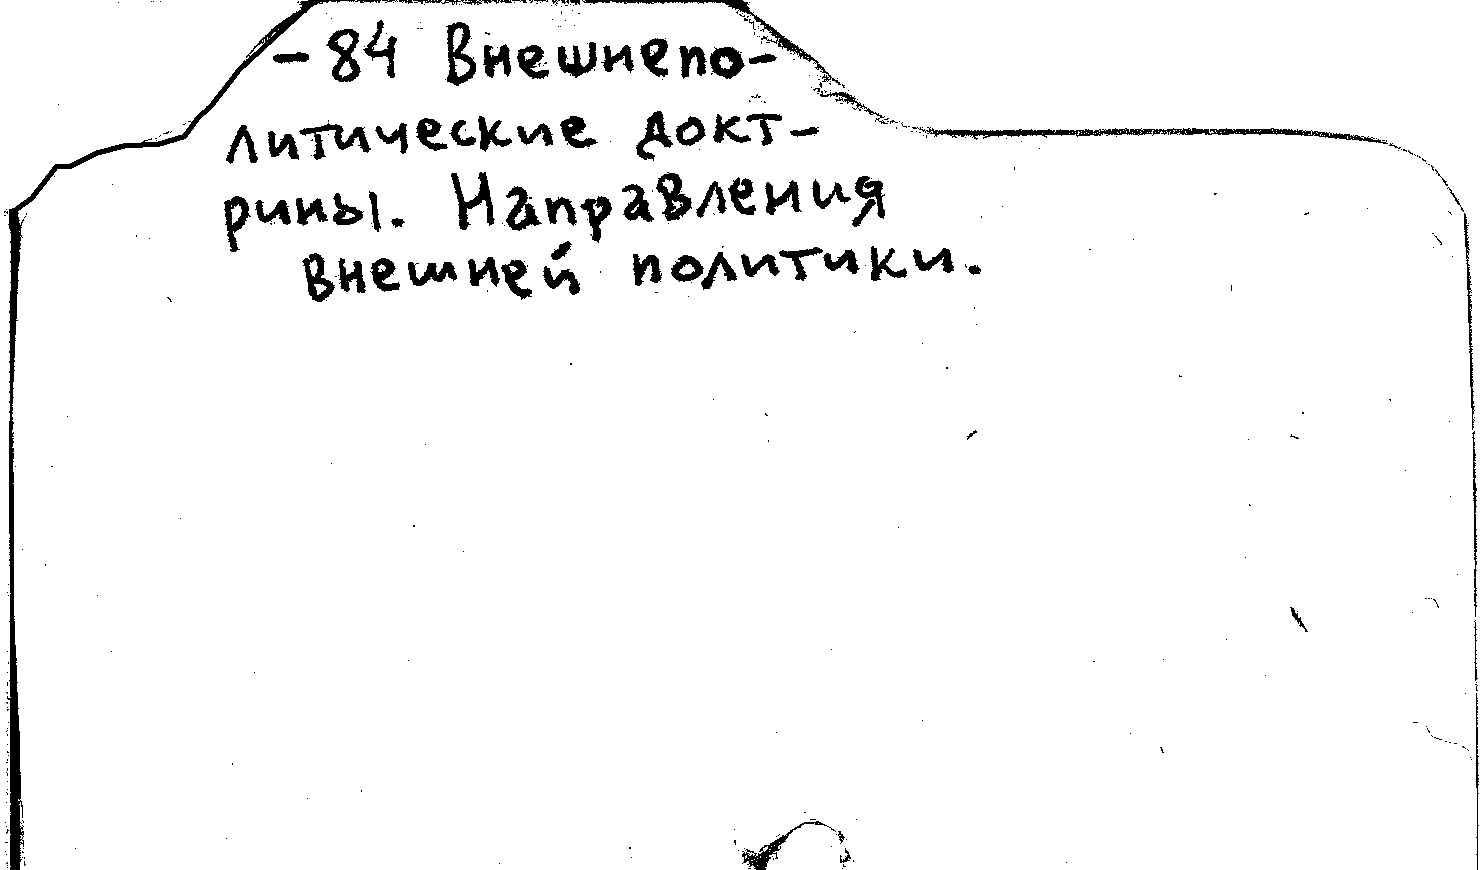 -84 Внешнепо-
литические докт-
рины. Направления
внешней политики.